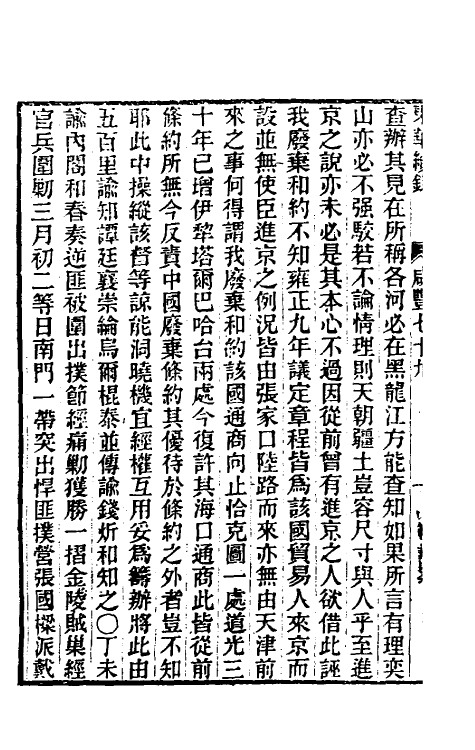 東華續錄 咸豐七十九
查辦其見在所稱各河必在黑龍江方能查知如果所言有理奕
山亦必不强駁若不論情理則天朝疆土豈容尺寸與人乎至進
京之說亦未必是其本心不過因從前曾有進京之人欲借此誣
我廢棄和約不知雍正九年議定章程皆爲該國貿易人來京而
設並無使臣進京之例況皆由張家口陸路而來亦無由天津前
來之事何得謂我廢棄和約該國通商向止恰克圖一處道光三
十年已增伊犂塔爾巴哈台兩處今復許其海口通商此皆從前
條約所無今反責中國廢棄條約其優待於條約之外者豈不知
耶此中操縱該督等諒能洞曉機宜經權互用妥爲籌辦將此由
五百里諭知譚廷襄崇綸烏爾棍泰並傳諭錢炘和知之〇丁未
諭內閣和春奏逆匪被圍出撲節經痛剿獲勝一摺金陵賊巢經
官兵圍剿三月初二等日南門一帶突出悍匪撲營張國樑派戴